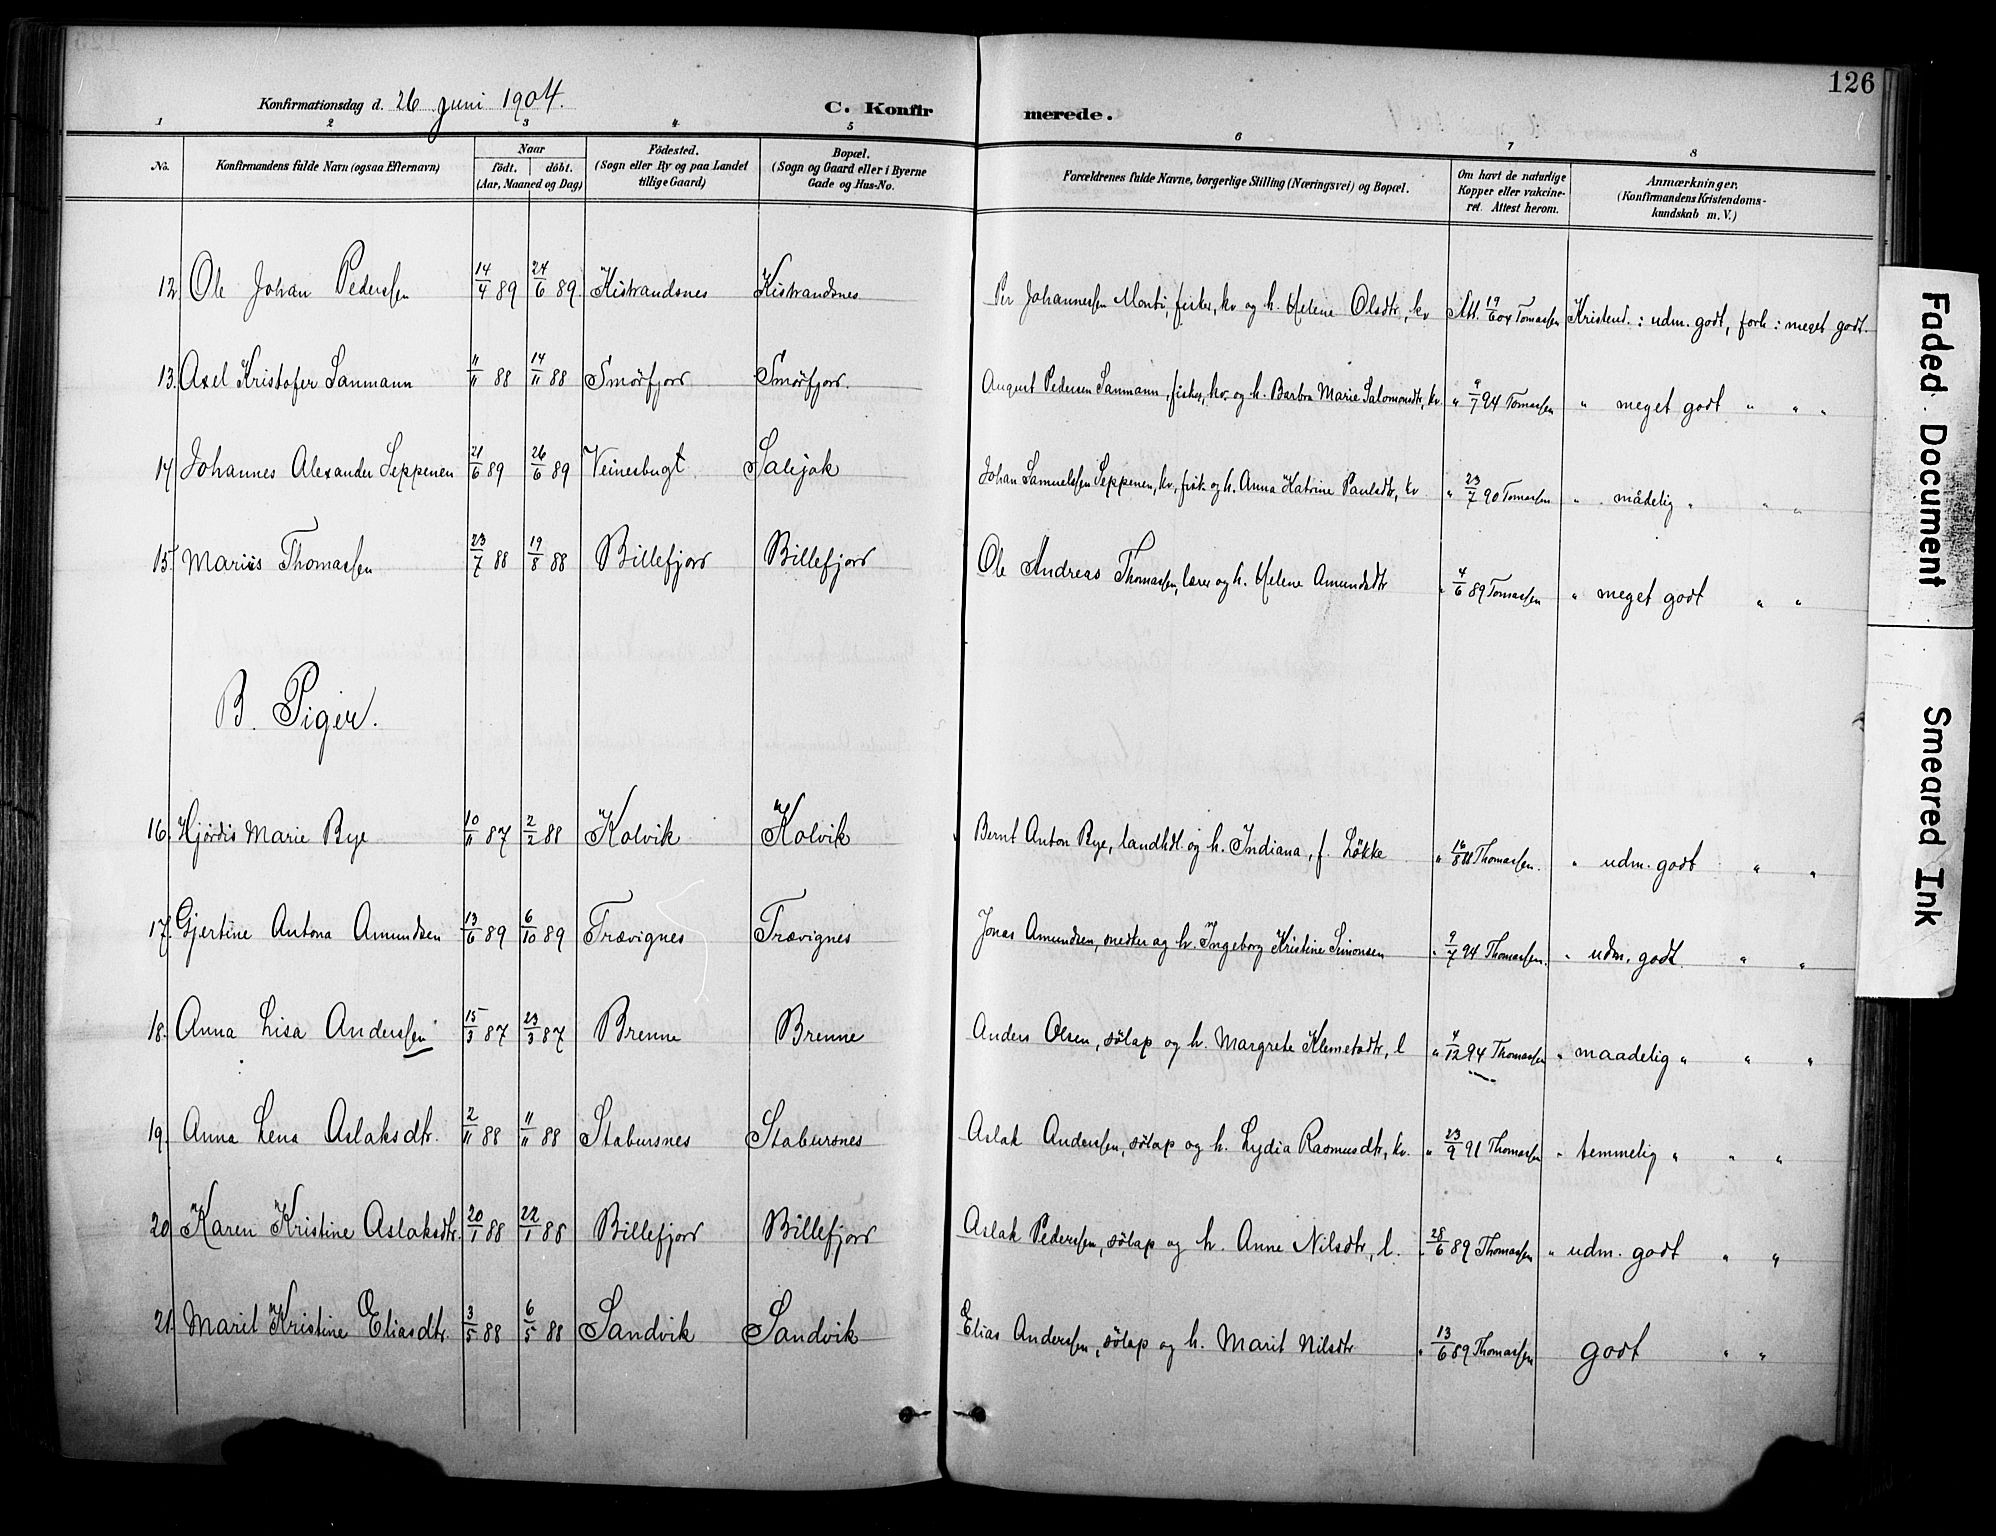 126
Konfirmationsdag d. 26 Juni 1904.
C. Konfirmerede.
1 2 3 4 5 6 7 8
No. Konfirmandens fulde Navn (ogsaa Efternavn) Naar født. døbt. (Aar, Maaned og Dag) Fødested. (Sogn eller By og paa Landet tillige Gaard) Bopæl. (Sogn og Gaard eller i Byerne Gade og Hus-No. Forældrenes fulde Navne, borgerlige Stilling (Næringsvei) og Bopæl. Om havt de naturlige Kopper eller vakcineret. Attest herom. Anmærkninger. (Konfirmandens Kristendomskundskab m. V.)
12 Ole Johan Pederssen 14/4 89 24/6 89 Kistrandsnes Kistrandsnes Per Johannessen Monti, fisker, kv og h. Helene Olsdtr, kv Att. 19/6 04 Tomassen Kristend.: udm. godt, forh: meget godt.
13. Axel Kristofer Sanmann 11/11 88 14/11 88 Smørfjord Smørfjord. August Pedersen Sanmann, fisker, kv. og h. Barbra Marie Salomonsdtr, kv. " 9/7 94 Tomassen " meget godt " " "
14 Johannes Alexander Seppenen 21/6 89 26/6 89 Veinesbugt Salejok Johan Samuelssen Seppenen, kv, fisk. og h. Anna Katrine Paulsdtr, kv " 23/7 90 Tomassen " mådelig " " "
15. Mariüs Thomassen 23/7 88 19/8 88 Billefjord Billefjord Ole Andreas Thomassen, lærer og h. Helene Amundsdtr " 4/6 89 Tomassen " meget godt " "
B. Piger.
16. Hjördis Marie Rye 10/11 87 2/2 88 Kolvik Kolvik Bernt Anton Rye, landhdl. og h. Indiana, f. Lökke " 16/8 Thomassen. " udm. godt " "
17. Gjertine Antona Amundsen 13/6 89 6/10 89 Trævignes Trævignes Jonas Amundsen, snedker og h. Ingeborg Kristine Simonsen " 9/7 94 Thomassen. " udm. godt " "
18. Anna Lisa Anderssen 15/3 87 23/3 87 Brenne Brenne Anders Olsen, sölap og h. Margrete Klemetsdtr, l " 4/12 94 Thomassen " maadelig " " "
19. Anna Lena Aslaksdtr. 2/11 88 11/11 88 Stabursnes Stabursnes Aslak Anderssen, sölap og h. Lydia Rasmusdtr, kv. " 23/9 91 Thomassen " temmelig " " "
20 Karen Kristine Aslaksdtr. 20/1 88 22/1 88 Billefjord Billefjord Aslak Pederssen, sölap og h. Anne Nilsdtr, l. " 28/6 89 Thomassen " udm. godt " "
21. Marit Kristine Eliasdtr. 3/5 88 6/5 88 Sandvik Sandvik Elias Anderssen, sölap og h. Marit Nilsdtr " 13/6 89 Thomassen godt " "
Faded Document
Smeared Ink